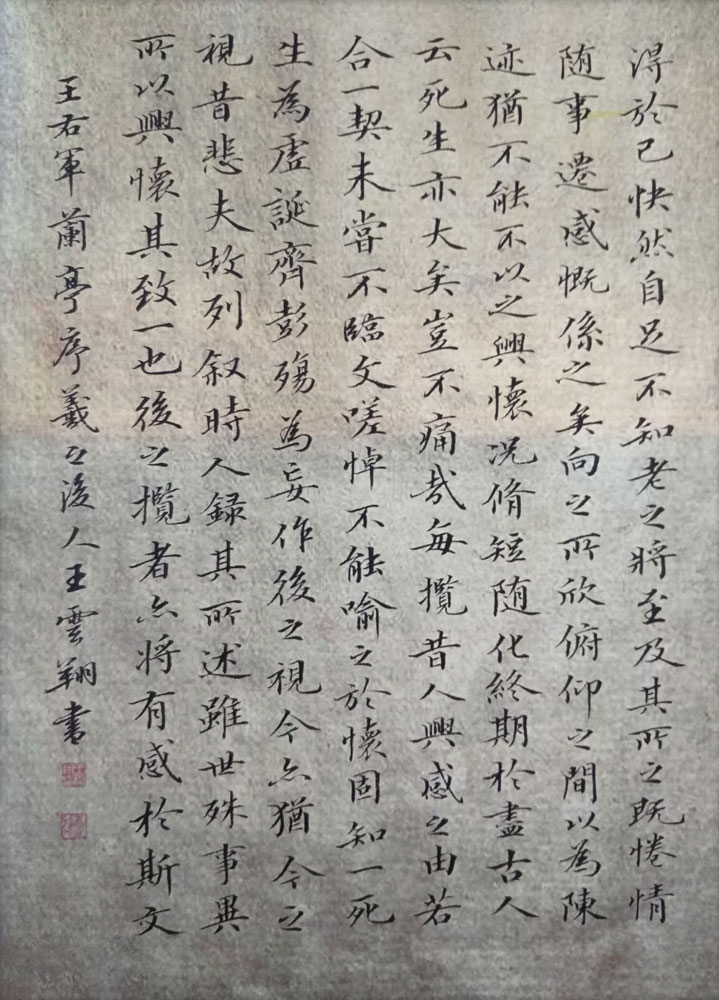 得於己快然自足不知老之將至及其所之既惓情
随事遷感慨係之矣向之所欣俯仰之間以為陳
迹猶不能不以之興懷况脩短随化終期於盡古人
云死生亦大矣豈不痛哉每攬昔人興感之由若
合一契未甞不臨文嗟悼不能喻之於懷固知一死
生為虚誕齊彭殤為妄作後之視今亦猶今之
視昔悲夫故列叙時人録其所述雖世殊事異
所以興懷其致一也後之攬者亦將有感於斯文
王右軍蘭亭序羲之後人王雲翔書